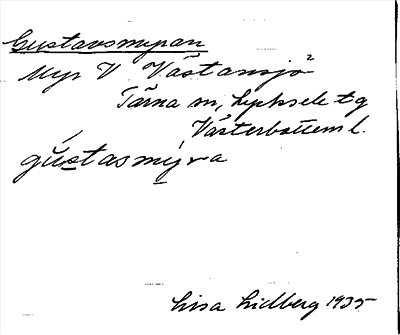 Gustavsmyran
Myr V Västansjö
Tärna sn, Lycksele tg
Västerbottens l.
gústasmýra
Lisa Lidberg 1935